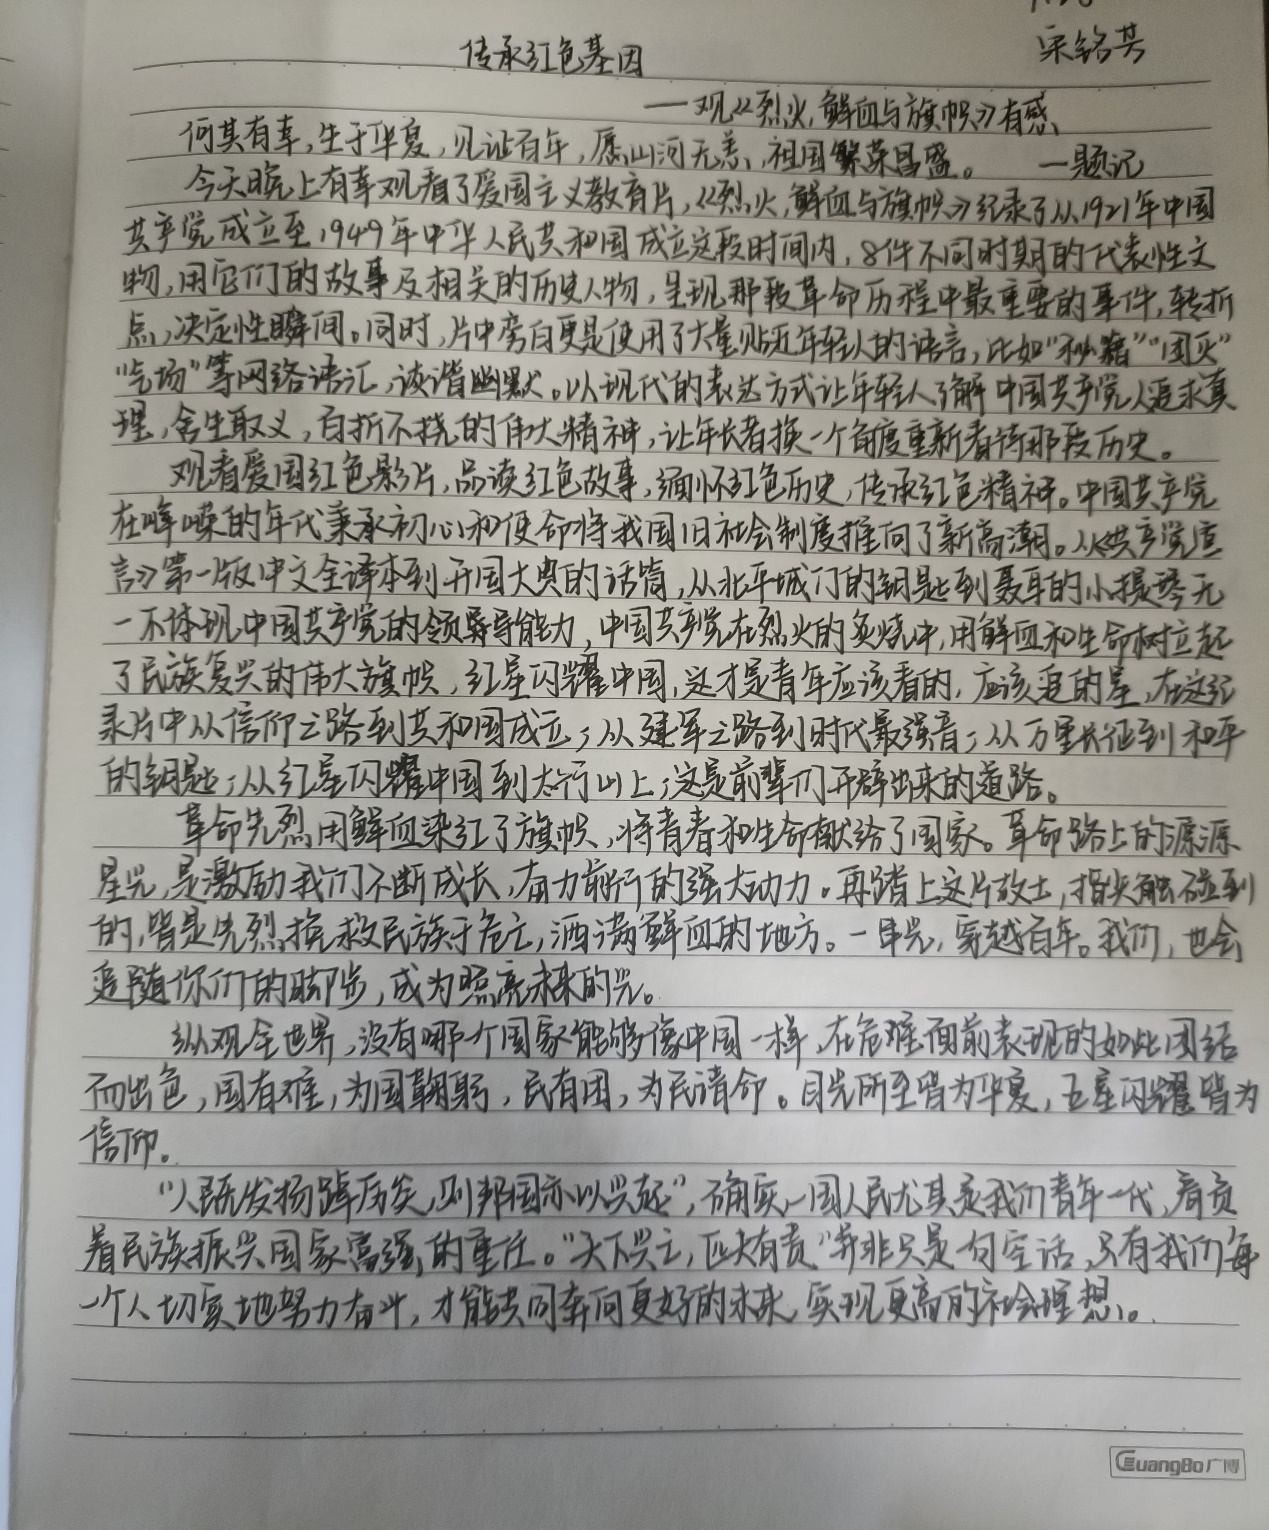 宋铭芸
传承红色基因
——观《烈火,鲜血与旗帜》有感
何其有幸,生于华夏,见证百年,愿山河无恙,祖国繁荣昌盛。 ——题记
今天晚上有幸观看了爱国主义教育片,《烈火,鲜血与旗帜》纪录了从1921年中国
共产党成立至1949年中华人民共和国成立这段时间内,8件不同时期的代表性文
物,用它们的故事及相关的历史人物,呈现那段革命历程中最重要的事件,转折
点,决定性瞬间。同时,片中旁白更是使用了大量贴近年轻人的语言,比如“秘籍”“团灭”
“气场”等网络语汇,诙谐幽默。以现代的表达方式让年轻人了解中国共产党人追求真
理,舍生取义,百折不挠的伟大精神,让年长者换一个角度重新看待那段历史。
观看爱国红色影片,品读红色故事,缅怀红色历史,传承红色精神。中国共产党
在峥嵘的年代秉承初心和使命将我国旧社会制度推向了新高潮。从《共产党宣
言》第一版中文全译本到开国大典的话筒,从北平城门的钥匙到聂耳的小提琴无
一不体现中国共产党的领导能力,中国共产党在烈火的炙烧中,用鲜血和生命树立起
了民族复兴的伟大旗帜,红星闪耀中国,这才是青年应该看的,应该追的星,在这纪
录片中从信仰之路到共和国成立;从建军之路到时代最强音;从万里长征到和平
的钥匙;从红星闪耀中国到太行山上;这是前辈们开辟出来的道路。
革命先烈用鲜血染红了旗帜,将青春和生命献给了国家。革命路上的源源
星光,是激励我们不断成长,奋力前行的强大动力。再踏上这片故土,指尖触碰到
的,皆是先烈挽救民族于危亡,洒满鲜血的地方。一束光,穿越百年。我们,也会
追随你们的脚步,成为照亮未来的光。
纵观全世界,没有哪个国家能够像中国一样,在危难面前表现的如此团结
而出色,国有难,为国鞠躬,民有困,为民请命。目光所至皆为华夏,五星闪耀皆为
信仰。
“人民既发扬踔厉矣,则邦国亦以兴起”,确实,一国人民尤其是我们青年一代,肩负
着民族振兴国家富强的重任。“天下兴亡,匹夫有责”并非只是句空话,只有我们每
一个人切实地努力奋斗,才能共同奔向更好的未来,实现更高的社会理想。
GuangBo广博